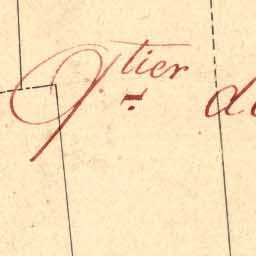 Q.tier d